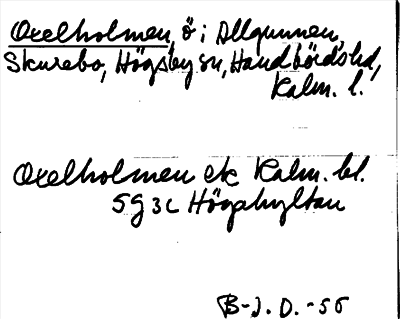 Oxelholmen, ö i Allgunnen,
Skurebo, Högsby sn, Handbörds hd,
Kalm. l.
Oxelholmen ek Kalm. bl.
5G3c Högahyltan
B-J.D.-56